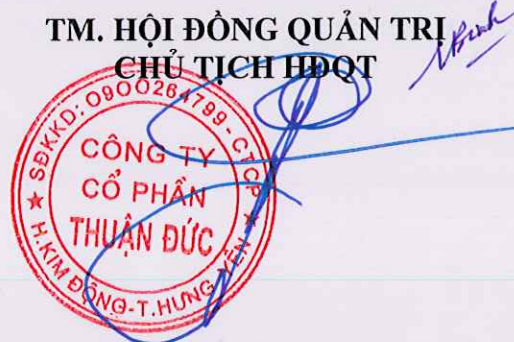 TM. HỘI ĐỒNG QUẢN TRỊ
CHỦ TỊCH HĐQT
SĐKKD: 0900264799 - CTCP
CÔNG TY
CỔ PHẦN
THUẬN ĐỨC
★ H.KIM ĐỘNG-T.HƯNG YÊN ★